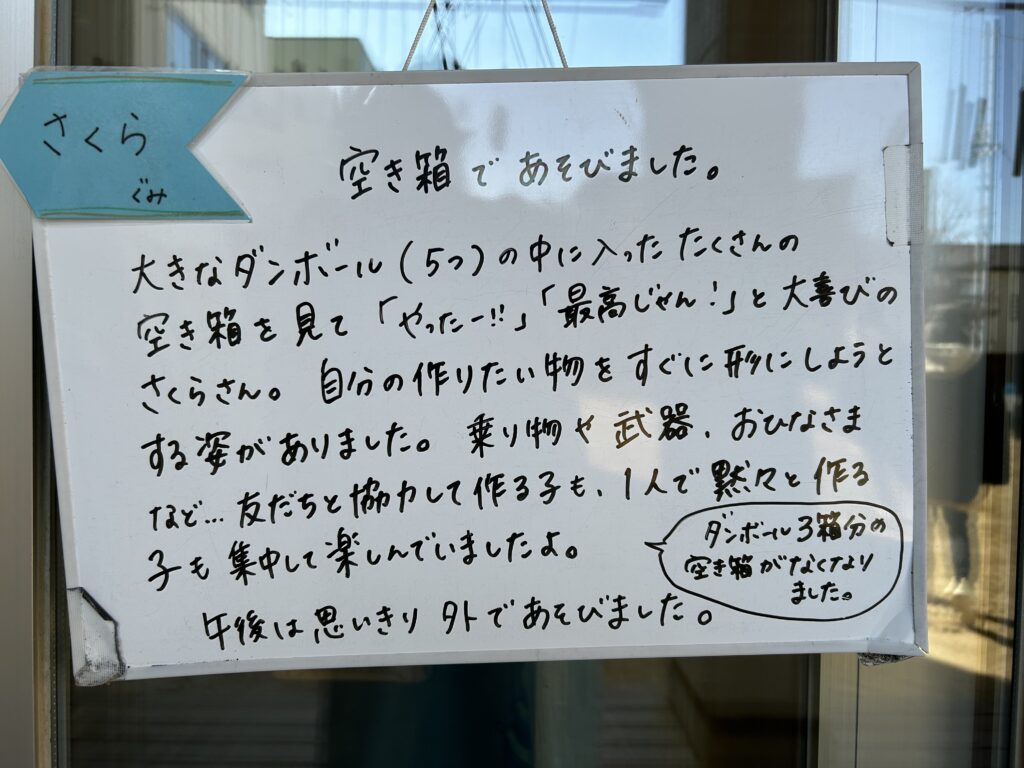 さくら
ぐみ
空き箱であそびました。
大きなダンボール(5つ)の中に入ったたくさんの
空き箱を見て「やったー!!」「最高じゃん!」と大喜びの
さくらさん。自分の作りたい物をすぐに形にしようと
する姿がありました。乗り物や武器、おひなさま
など…友だちと協力して作る子も、1人で黙々と作る
子も集中して楽しんでいましたよ。
ダンボール3箱分の
空き箱がなくなり
ました。
午後は思いきり外であそびました。